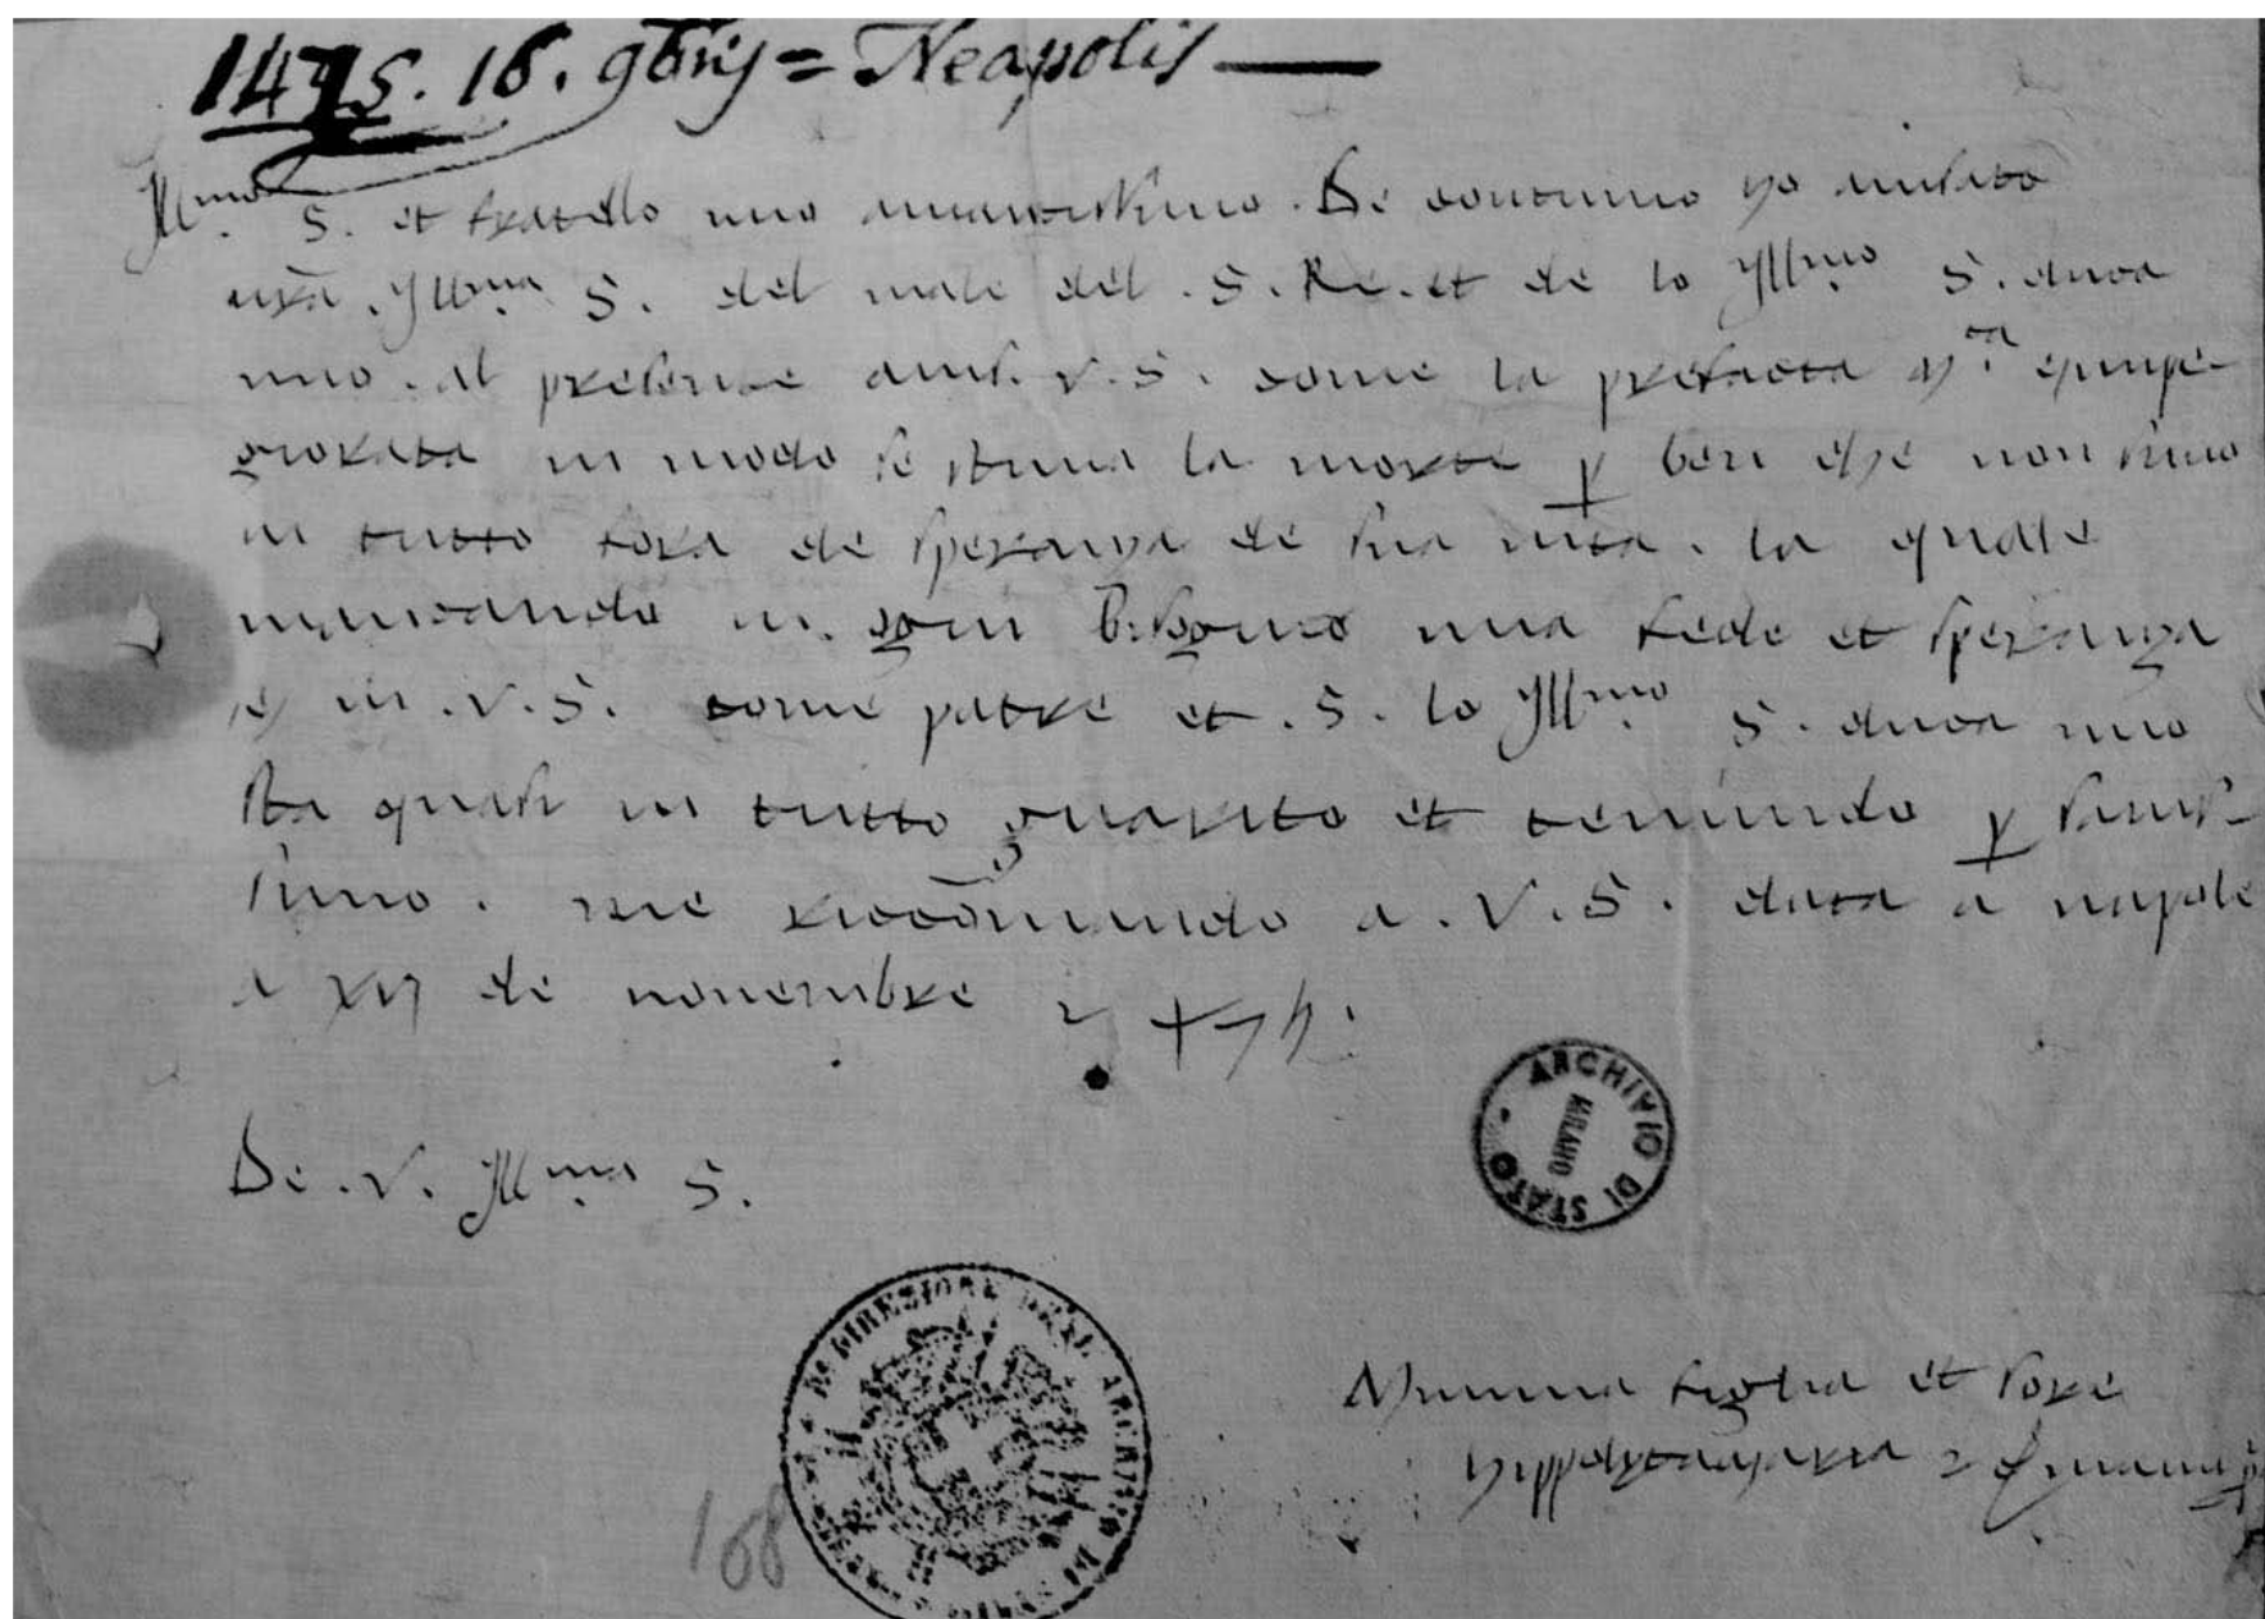 1475. 16. 9brij = Neapolis —
Illmo. S. et fratello mio amantissimo. De continuo yo avisato
vra. Illma S. del male del .S. Re. et de lo Illmo. S. duca
mio. al presente avis. V.S. come la prefacta Mta
giorata in modo se stima la morte p ben che non simo
in tutto fora de speranza de sua vita. la quale
mancando in ogni bisogno mia fede et speranza
ey in .V.S. come patre et .S. lo Illmo. S. duca mio
sta quasi in tutto guarito et tenendo p sanis-
simo. me reccōmando a .V.S. data a napole
a xvj de novembre
De .V. Illma S.
ARCHIVIO DI STATO
MILANO
168
figlia et sore